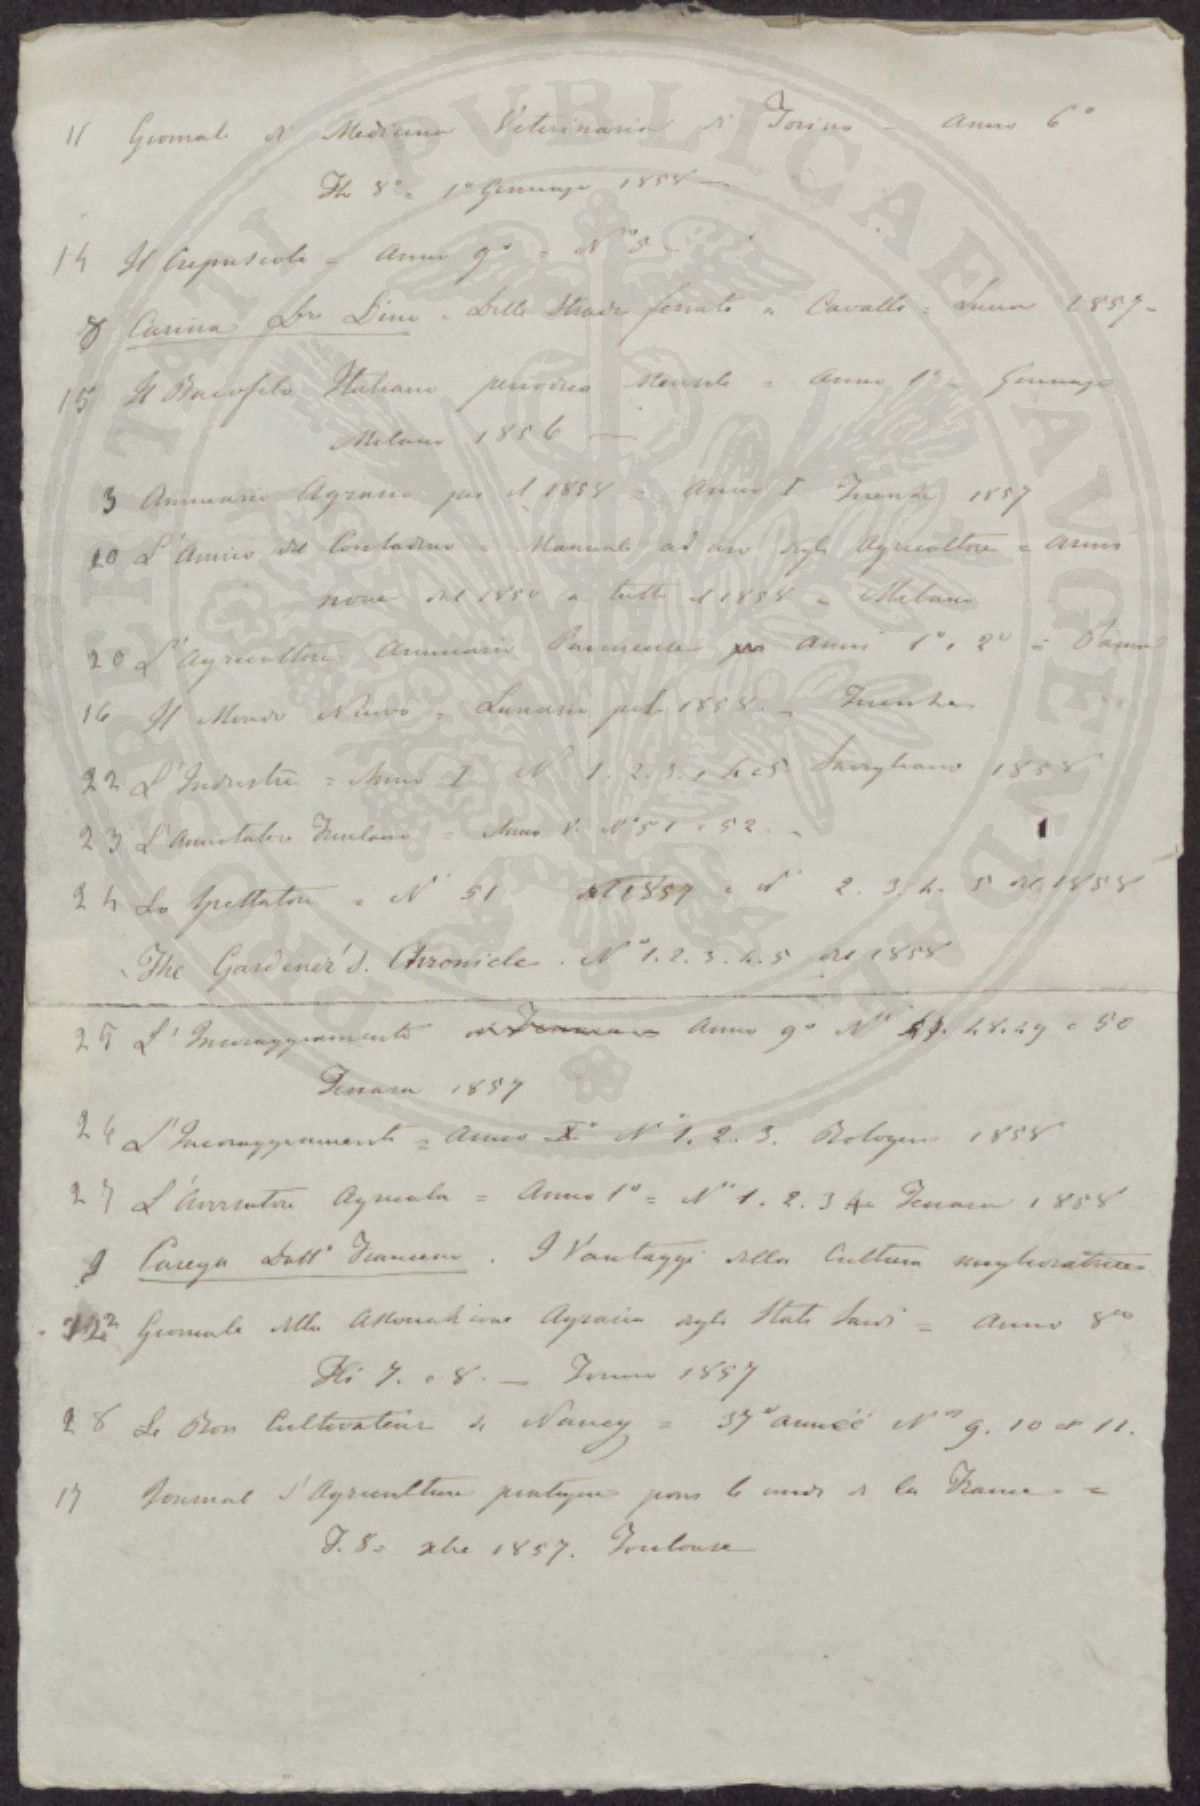 11 Giornale di Medicina Veterinaria di Torino = Anno 6°
8° = 1° Gennajo 1858 —
14 Il Crepuscolo = Anno 9° = N° 5 =
8 Carina Dre Dino = Delle Strade ferrate a Cavallo = Lucca 1857 =
15 Il Bacofilo Italiano periodico Mensile = Anno 1° = Gennajo
Milano 1856 —
3 Annuario Agrario per il 1858 = Anno I Firenze 1857
10 L'Amico del Contadino = Manuale ad uso degli Agricoltori = Anni
nove dal 1850 a tutto il 1858 = Milano
20 L'Agricoltore Annuario Parmense Anni 1° e 2° = Parma
16 Il Mondo Nuovo = Lunario pel 1858. = Firenze
22 L'Industre = Anno I N° 1. 2. 3. 4 e 5 Savigliano 1858
23 L'Annotatore Friulano = Anno V. N° 51 e 52. =
24 Lo Spettatore = N° 51 del 1857 e N° 2. 3. 4. 5 del 1858
The Gardener's. Chronicle. N° 1. 2. 3. 4. 5 del 1858
25 L'Incoraggiamento di Ferrara = Anno 9° N° 47. 48. 49 e 50
Ferrara 1857
26 L'Incoraggiamento = Anno X° N° 1. 2. 3. Bologna 1858
27 L'Avvisatore Agricola = Anno 1° = N° 1. 2. 3 4 = Ferrara 1858
9 Carega Dott° Francesco. I Vantaggi della Cultura miglioratrice
12 Giornale della Associazione Agraria degli Stati Sardi = Anno 8°
Fli 7. e 8. — Torino 1857
28 Le Bon Cultivateur de Nancy = 37e année Nos 9. 10 et 11.
17 Journal d'Agriculture pratique pour le midi de la France =
T. 8 = xbre 1857. Toulouse